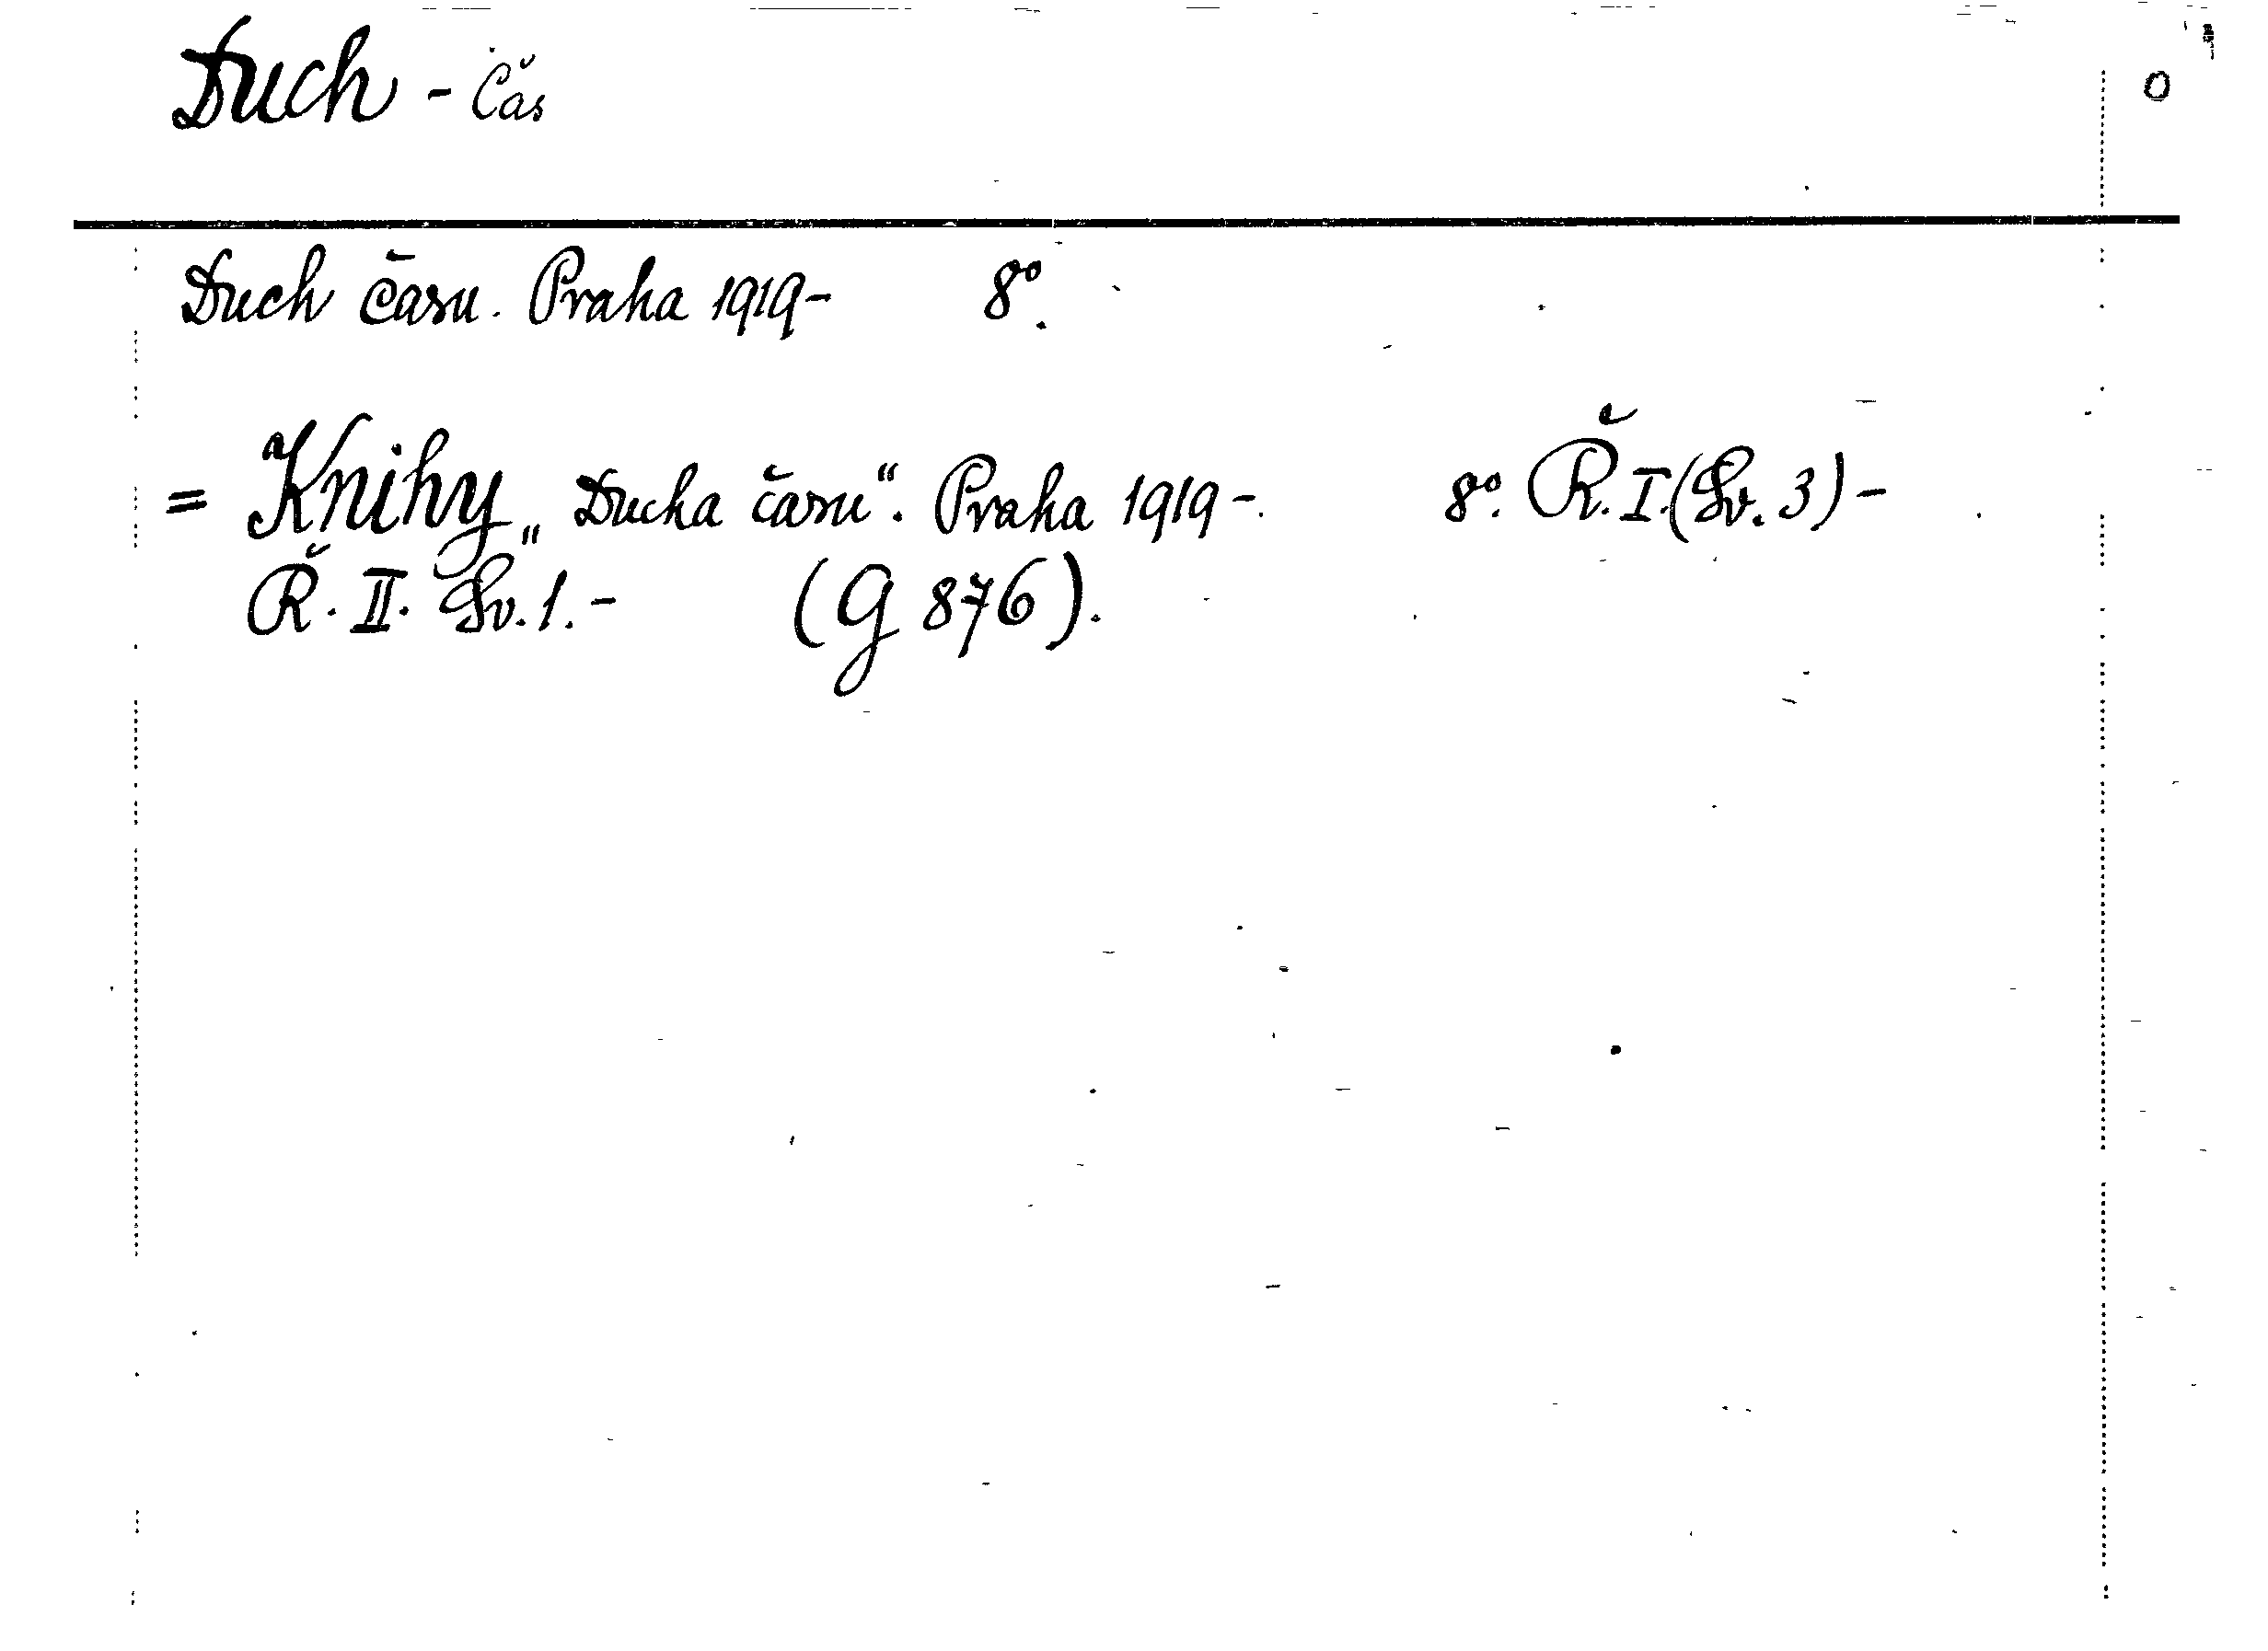 Duch - Čas
O
Duch času. Praha 1919- 8º.
= Knihy „Ducha času“. Praha 1919-. 8º. Ř. I. (Sv. 3) -
Ř. II. Sv. 1. - (G 876).